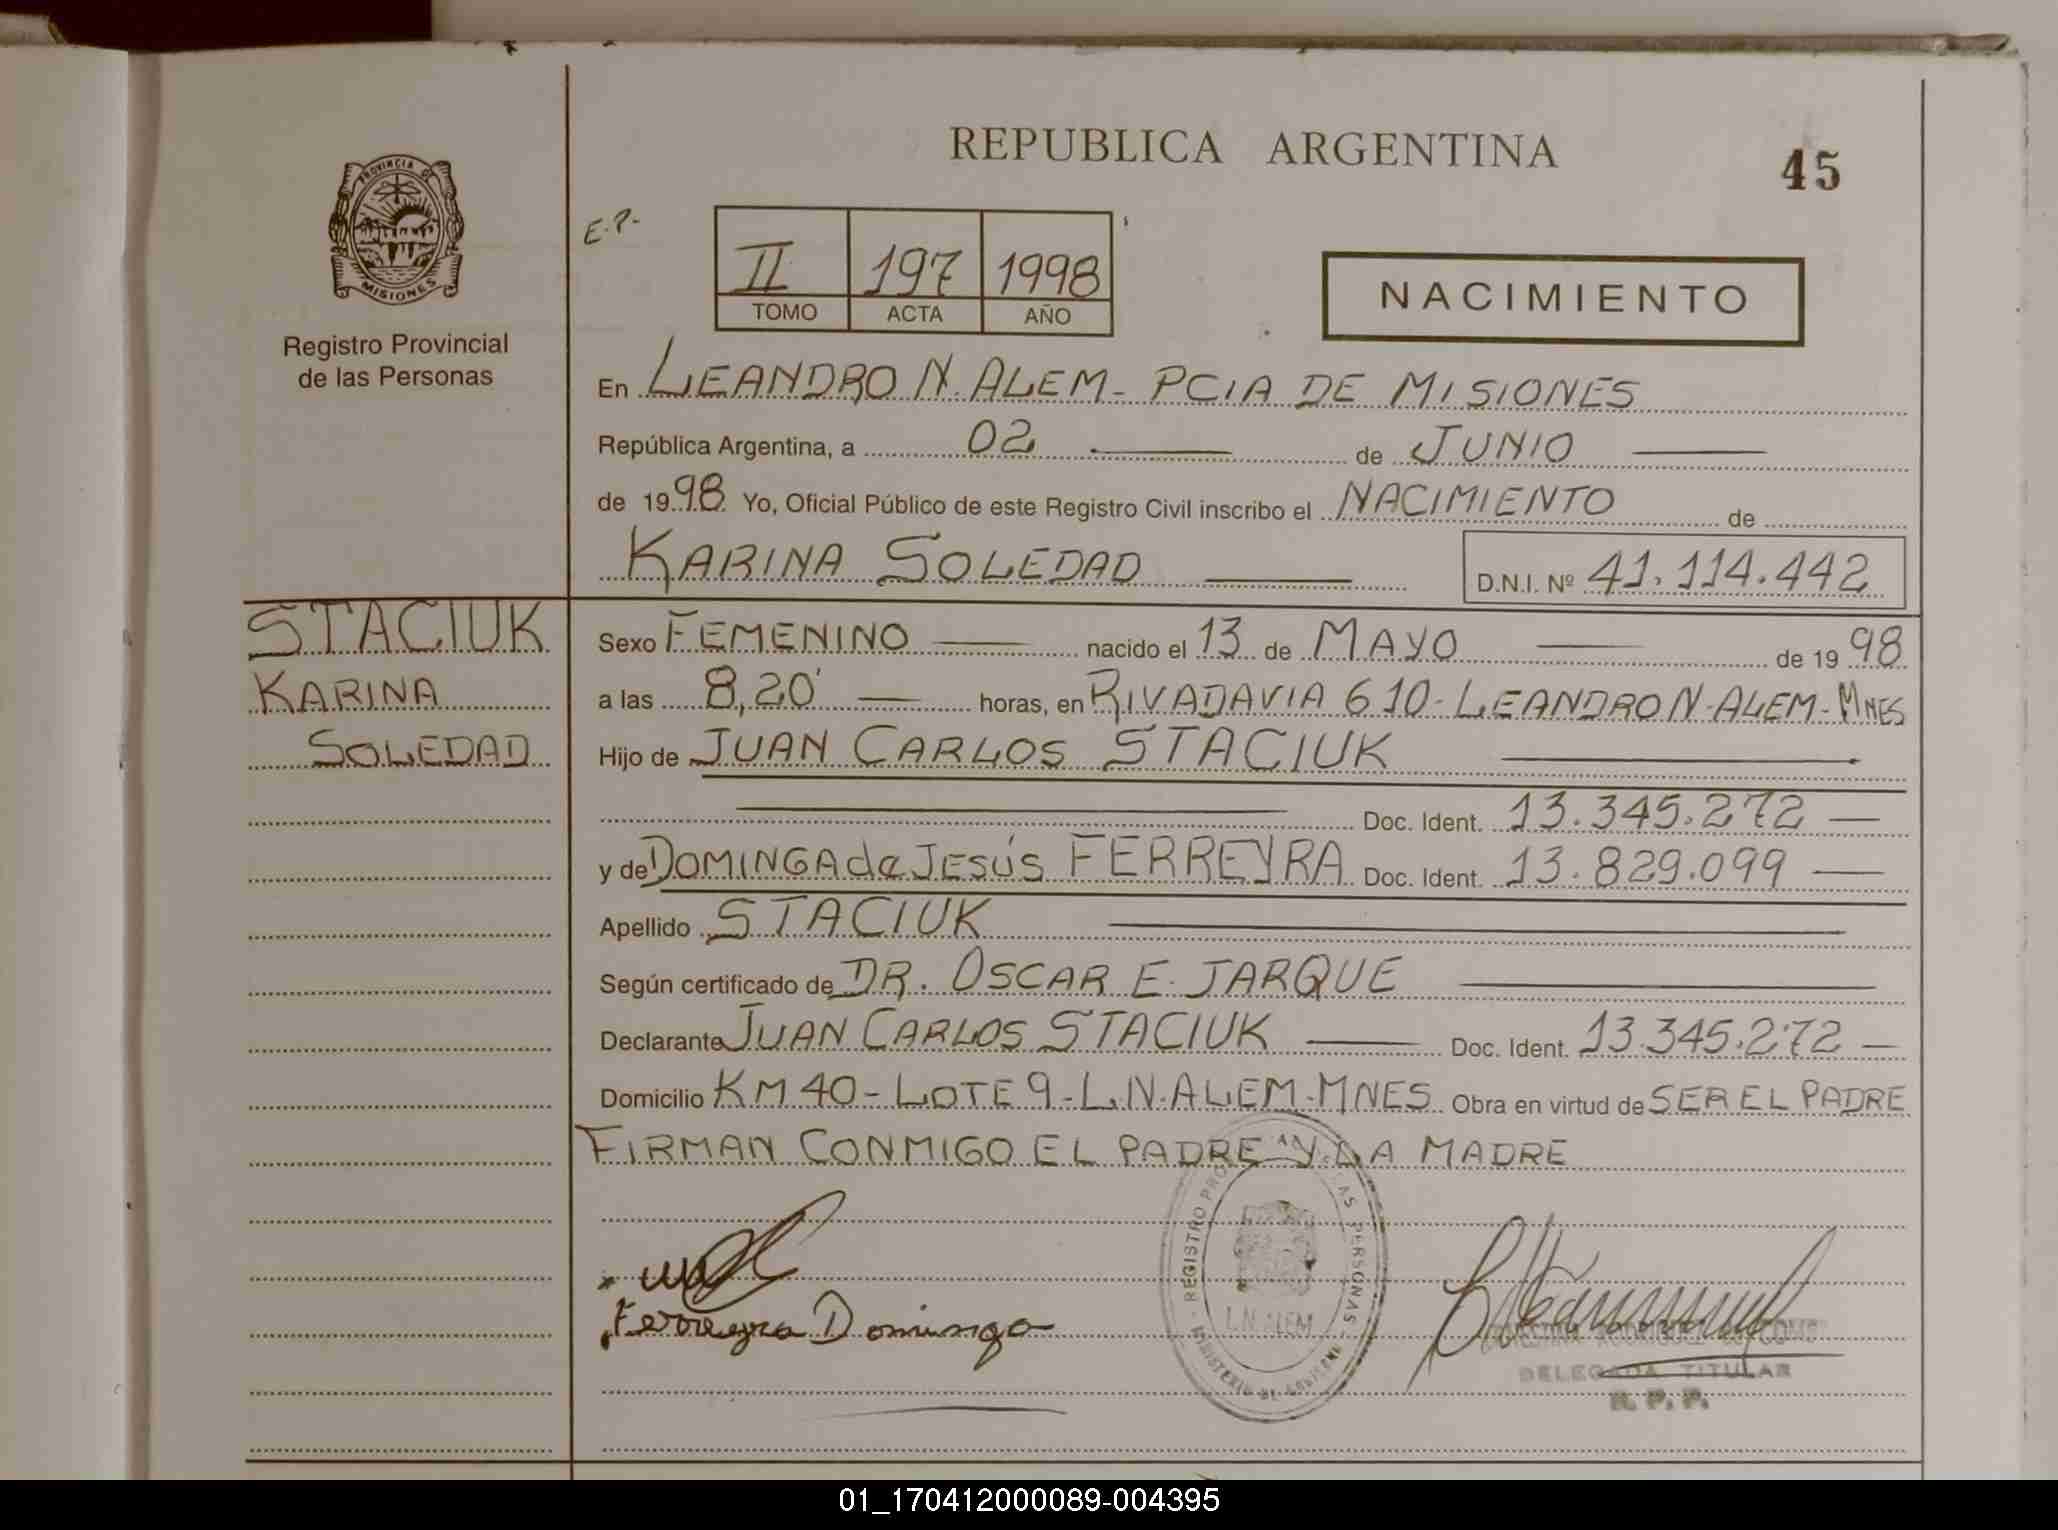 REPUBLICA ARGENTINA
45
PROVINCIA DE MISIONES
Registro Provincial
de las Personas
E.P.
II 197 1998
TOMO ACTA AÑO
NACIMIENTO
En LEANDRO N. ALEM - PCIA DE MISIONES
República Argentina, a 02 de JUNIO
de 1998. Yo, Oficial Público de este Registro Civil inscribo el NACIMIENTO de
KARINA SOLEDAD D.N.I. Nº 41.114.442
STACIUK
KARINA
SOLEDAD
Sexo FEMENINO nacido el 13 de MAYO de 1998
a las 8,20' horas, en RIVADAVIA 610 - LEANDRO N. ALEM - MNES
Hijo de JUAN CARLOS STACIUK
Doc. Ident. 13.345.272
y de DOMINGA de JESÚS FERREYRA Doc. Ident. 13.829.099
Apellido STACIUK
Según certificado de DR. OSCAR E. JARQUE
Declarante JUAN CARLOS STACIUK Doc. Ident. 13.345.272
Domicilio KM 40 - LOTE 9 - L.N. ALEM - MNES Obra en virtud de SER EL PADRE
FIRMAN CONMIGO EL PADRE Y LA MADRE
Ferreyra Dominga
L.N. ALEM
DELEGADA TITULAR
R. P. P.
01_170412000089-004395